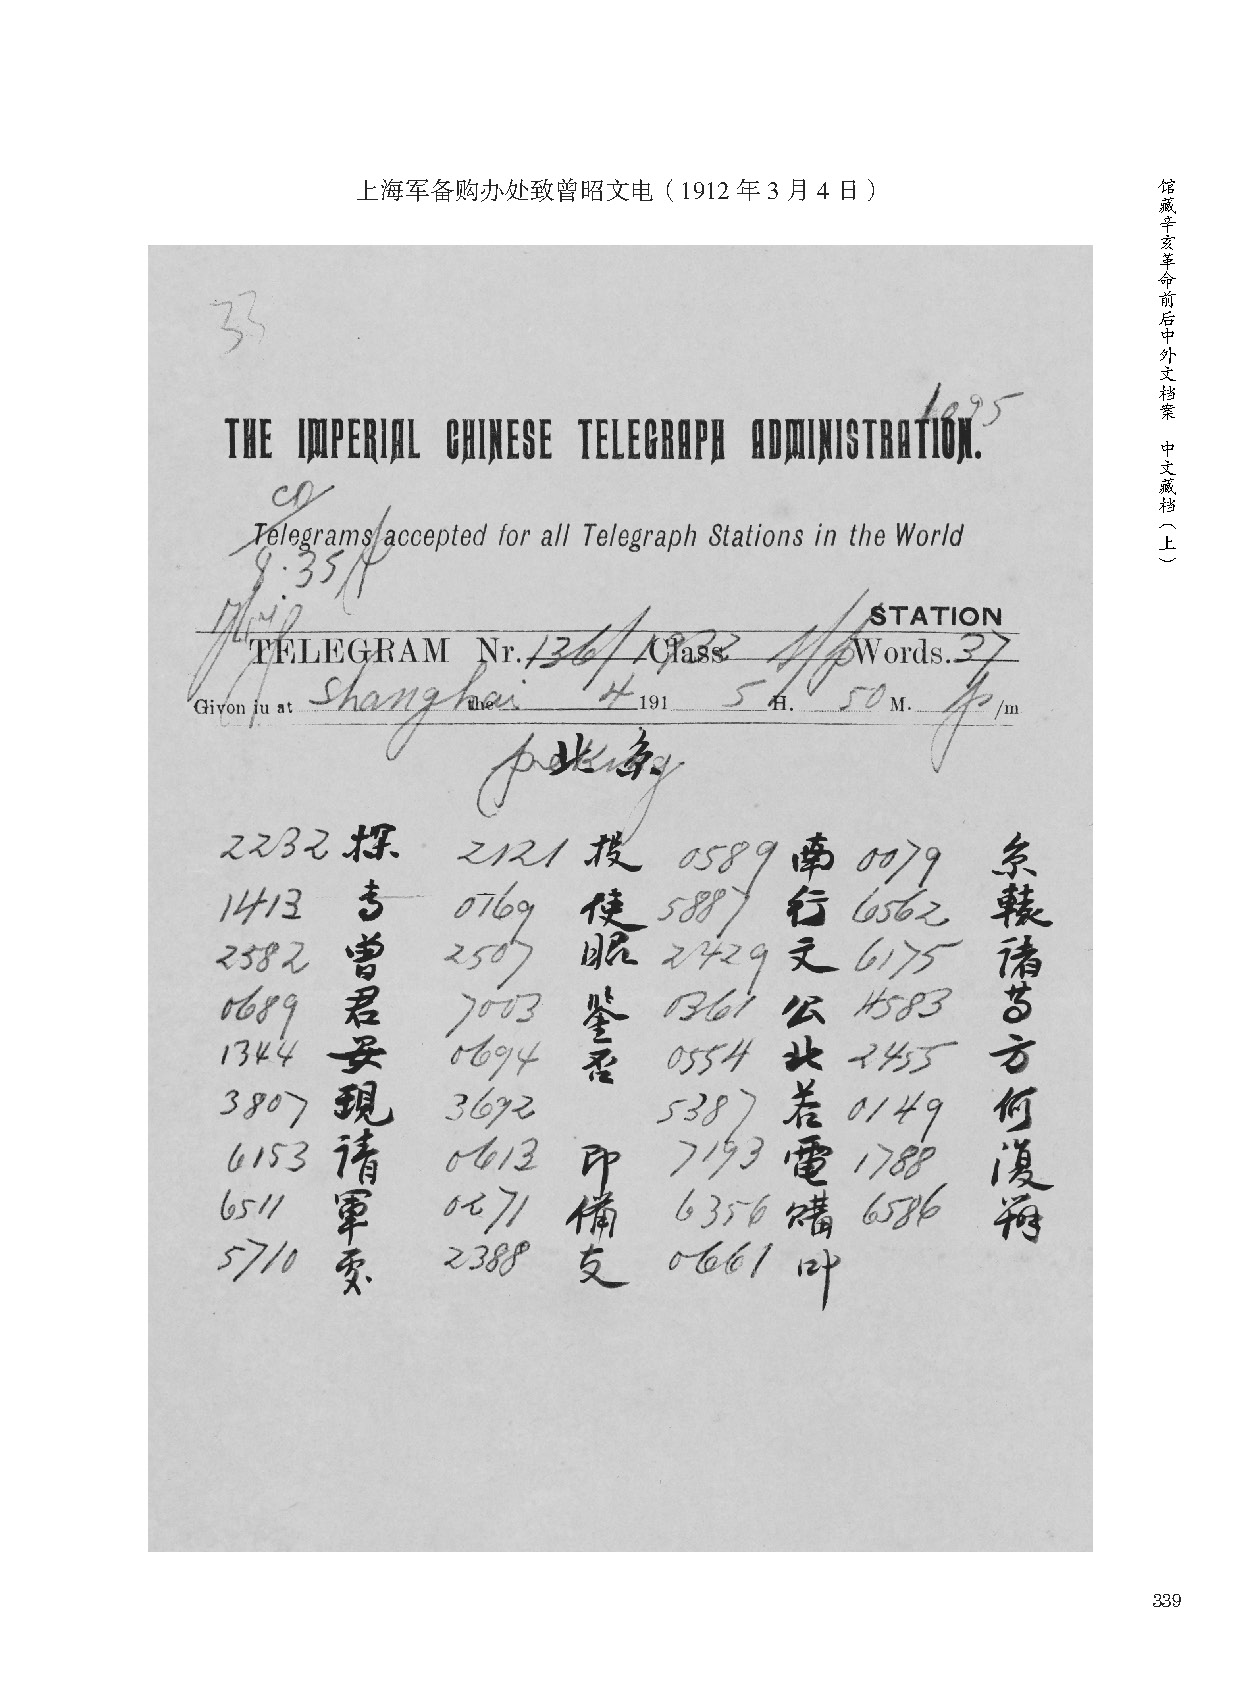 上海军备购办处致曾昭文电（1912 年 3 月 4 日）
馆藏辛亥革命前后中外文档案 中文藏档（上）
33
1095
THE IMPERIAL CHINESE TELEGRAPH ADMINISTRATION.
Telegrams accepted for all Telegraph Stations in the World
STATION
TELEGRAM Nr. 136/1933 Class Words. 37
Given in at Shanghai the 4 191 5 H. 50 M. p/m
peking 北京
2232 探 2121 投 0589 南 0079 京
1413 専 0169 使 5887 行 6562 轅
2582 曾 2507 昭 2429 文 6175 諸
0689 君 7003 鉴 0361 公 4583
1344 安 0694 否 0554 北 2455 方
3807 現 3692 5387 若 0149 何
6153 請 0613 即 7193 電 1788 復
6511 軍 0271 備 6356 購 6586 辦
5710 處 2388 支 0661 叩
339